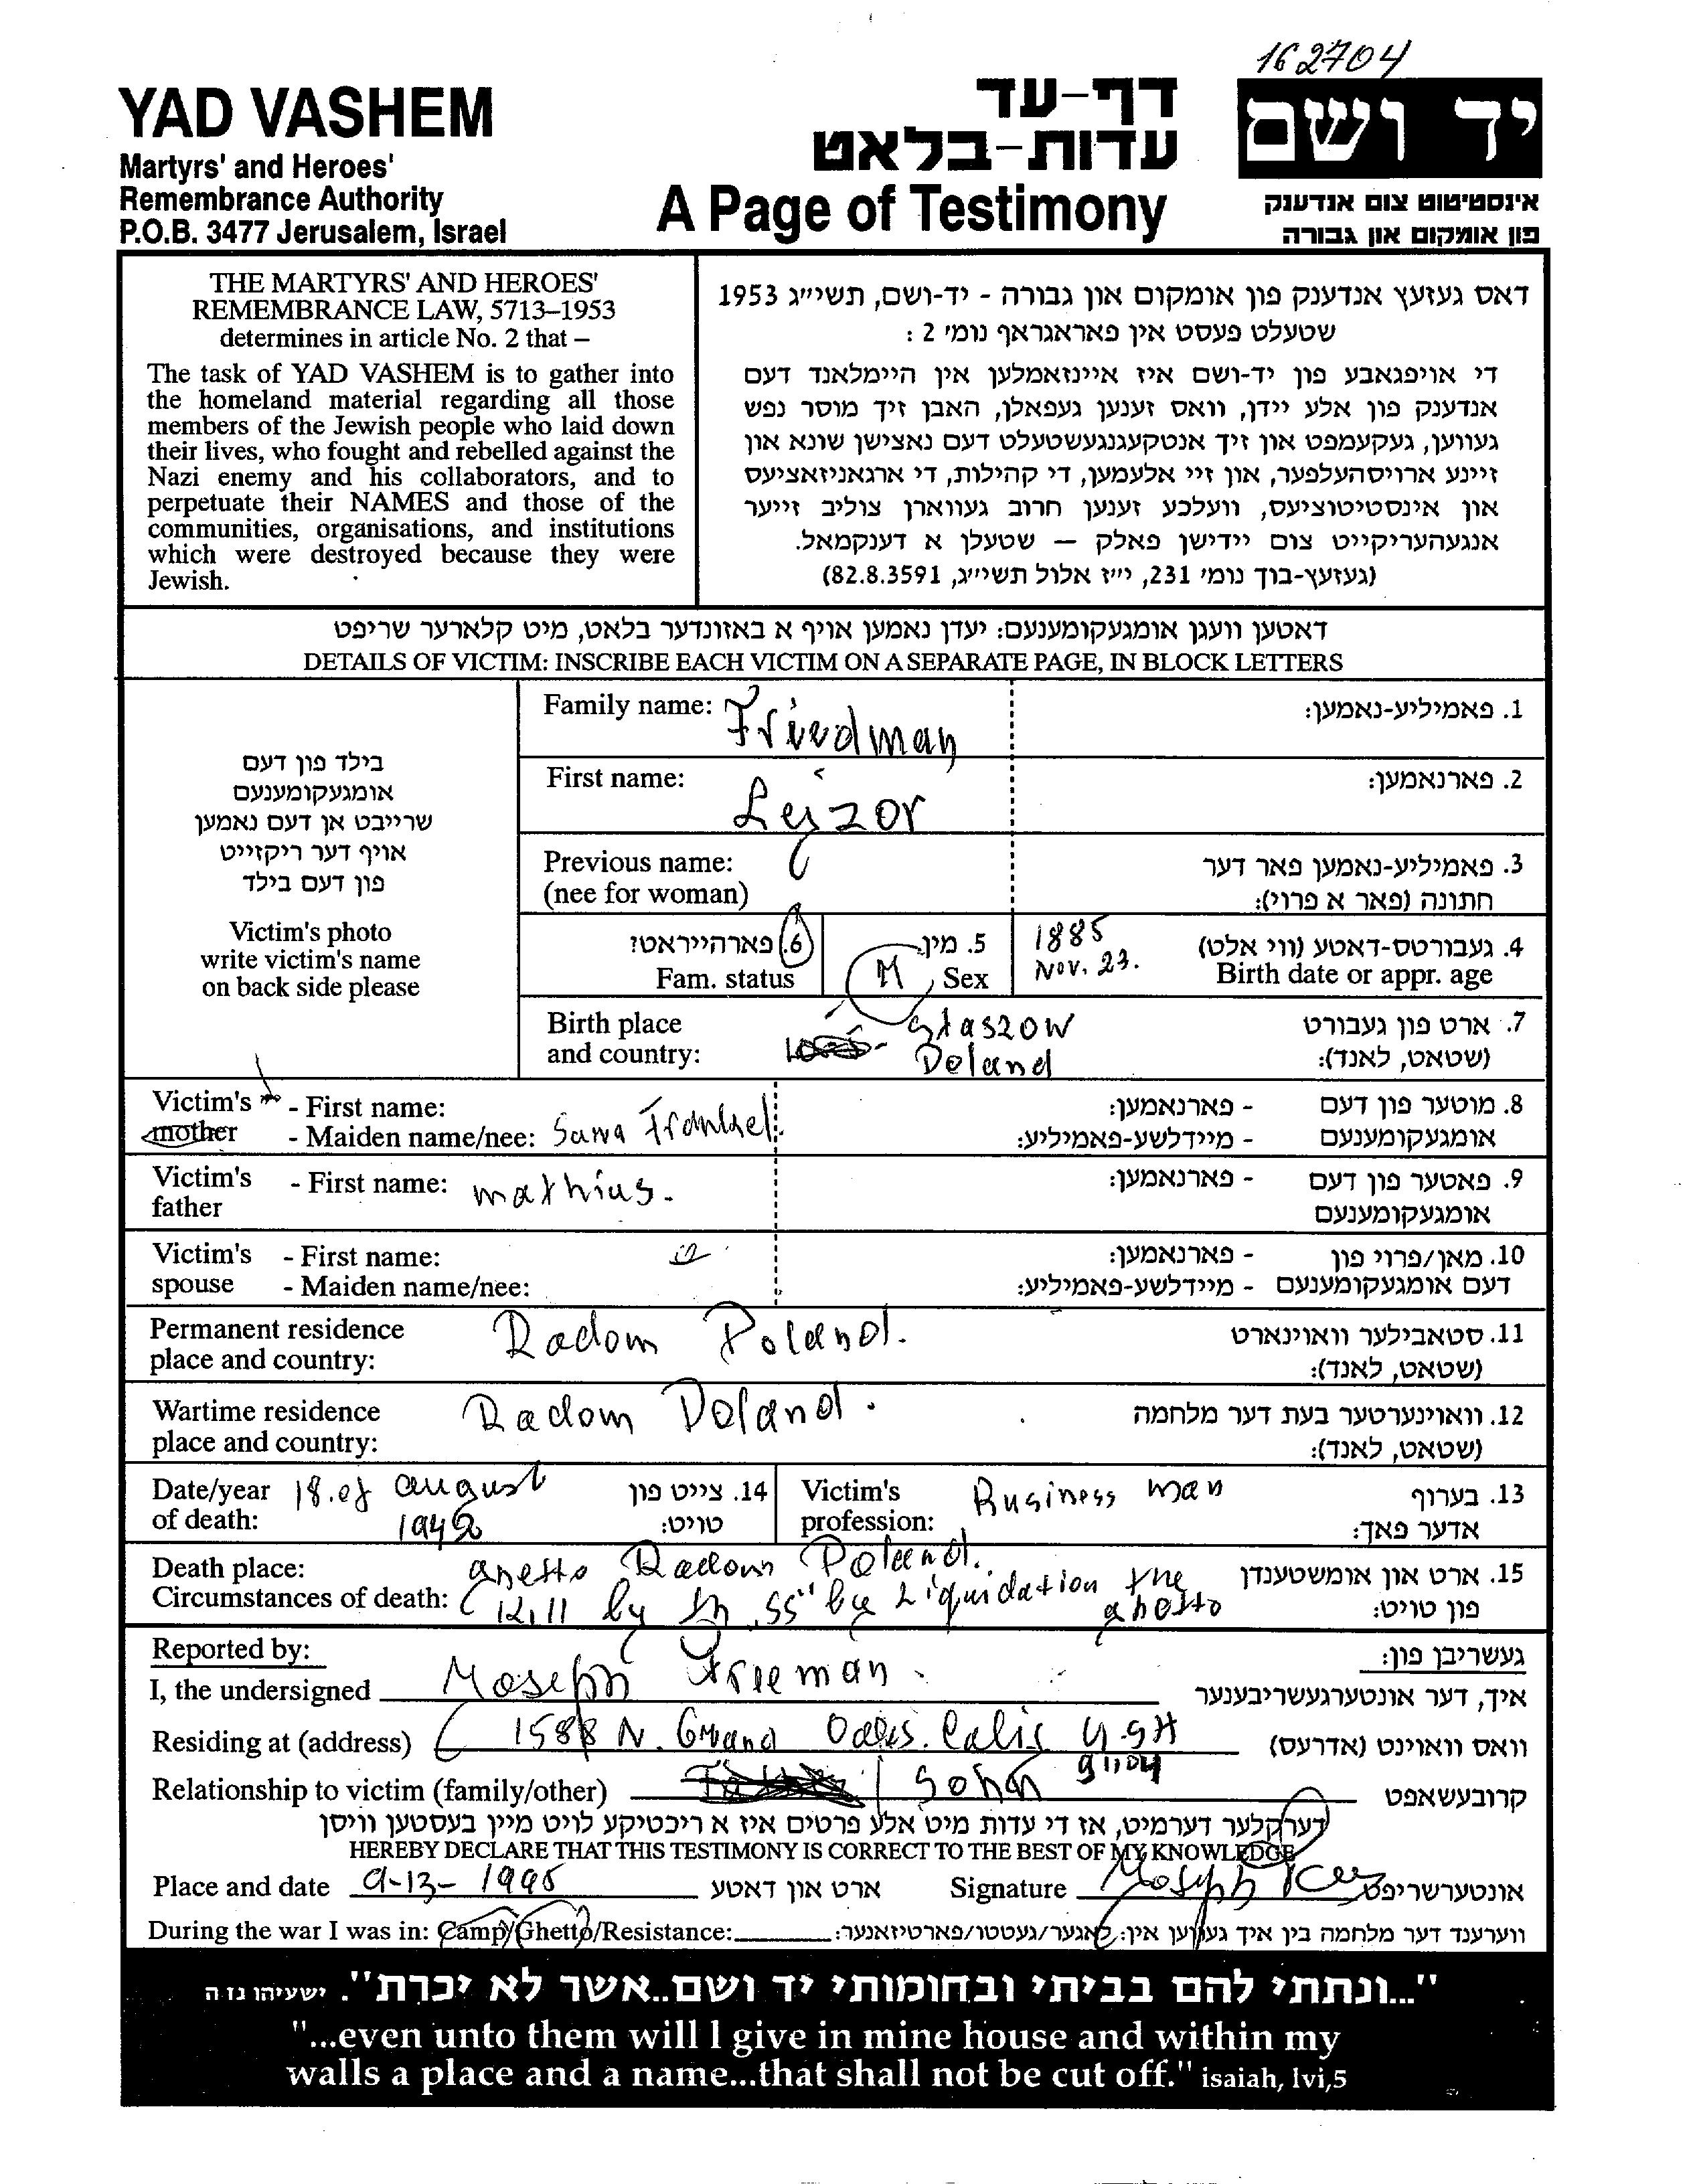 162704
YAD VASHEM
Martyrs' and Heroes'
Remembrance Authority
P.O.B. 3477 Jerusalem, Israel
דף-עד
עדות-בלאט
A Page of Testimony
יד ושם
אינסטיטוט צום אנדענק
פון אומקום און גבורה
THE MARTYRS' AND HEROES'
REMEMBRANCE LAW, 5713–1953
determines in article No. 2 that –
The task of YAD VASHEM is to gather into
the homeland material regarding all those
members of the Jewish people who laid down
their lives, who fought and rebelled against the
Nazi enemy and his collaborators, and to
perpetuate their NAMES and those of the
communities, organisations, and institutions
which were destroyed because they were
Jewish.
דאס געזעץ אנדענק פון אומקום און גבורה - יד-ושם, תשי״ג 1953
שטעלט פעסט אין פאראגראף נומ׳ 2 :
די אויפגאבע פון יד-ושם איז איינזאמלען אין היימלאנד דעם
אנדענק פון אלע יידן, וואס זענען געפאלן, האבן זיך מוסר נפש
געווען, געקעמפט און זיך אנטקעגנגעשטעלט דעם נאצישן שונא און
זיינע ארויסהעלפער, און זיי אלעמען, די קהילות, די ארגאניזאציעס
און אינסטיטוציעס, וועלכע זענען חרוב געווארן צוליב זייער
אנגעהעריקייט צום יידישן פאלק — שטעלן א דענקמאל.
(געזעץ-בוך נומ׳ 231, י״ז אלול תשי״ג, 82.8.3591)
דאטען וועגן אומגעקומענעם: יעדן נאמען אויף א באזונדער בלאט, מיט קלארער שריפט
DETAILS OF VICTIM: INSCRIBE EACH VICTIM ON A SEPARATE PAGE, IN BLOCK LETTERS
בילד פון דעם
אומגעקומענעם
שרייבט אן דעם נאמען
אויף דער ריקזייט
פון דעם בילד
Victim's photo
write victim's name
on back side please
Family name: Friedman 1. פאמיליע-נאמען:
First name: Lejzor 2. פארנאמען:
Previous name: 3. פאמיליע-נאמען פאר דער
(nee for woman) חתונה (פאר א פרוי):
6. פארהייראט? 5. מין 1885 4. געבורטס-דאטע (ווי אלט)
Fam. status M Sex Nov. 23. Birth date or appr. age
Birth place Staszow 7. ארט פון געבורט
and country: Poland (שטאט, לאנד):
Victim's - First name: 8. מוטער פון דעם - פארנאמען:
mother - Maiden name/nee: אומגעקומענעם - מיידלשע-פאמיליע:
Victim's - First name: mathius. 9. פאטער פון דעם - פארנאמען:
father אומגעקומענעם
Victim's - First name: 10. מאן/פרוי פון - פארנאמען:
spouse - Maiden name/nee: דעם אומגעקומענעם - מיידלשע-פאמיליע:
Permanent residence Radom Poland. 11. סטאבילער וואוינארט
place and country: (שטאט, לאנד):
Wartime residence Radom Poland. 12. וואוינערטער בעת דער מלחמה
place and country: (שטאט, לאנד):
Date/year 18. of august 14. צייט פון Victim's Business man 13. בערוף
of death: 1942 טויט: profession: אדער פאך:
Death place: ghetto Radom Poland. 15. ארט און אומשטענדן
Circumstances of death: Kill by "SS" by Liquidation the ghetto פון טויט:
Reported by: געשריבן פון:
I, the undersigned Moseph Freeman. איך, דער אונטערגעשריבענער
Residing at (address) 1588 N. Grand Oaks. Calif 91104 וואס וואוינט (אדרעס)
Relationship to victim (family/other) Sohn קרובעשאפט
דערקלער דערמיט, אז די עדות מיט אלע פרטים איז א ריכטיקע לויט מיין בעסטען וויסן
HEREBY DECLARE THAT THIS TESTIMONY IS CORRECT TO THE BEST OF MY KNOWLEDGE
Place and date 9-13-1995 ארט און דאטע Signature אונטערשריפט
During the war I was in: Camp/Ghetto/Resistance: ווערענד דער מלחמה בין איך געווען אין: לאגער/געטטו/פארטיזאנער:
"...ונתתי להם בביתי ובחומותי יד ושם..אשר לא יכרת". ישעיהו נז ה
"...even unto them will I give in mine house and within my
walls a place and a name...that shall not be cut off." isaiah, lvi,5